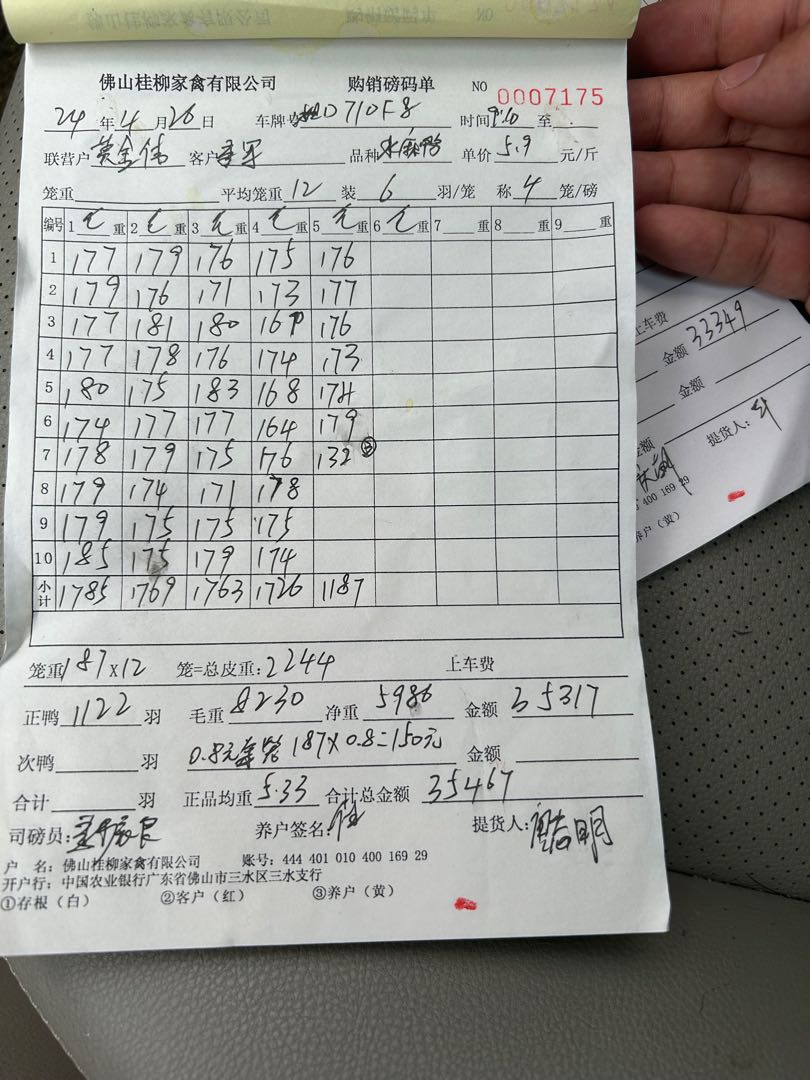 佛山桂柳家禽有限公司 购销磅码单 NO 0007175
24年4月26日 车牌号 D710F8 时间9:10至
联营户 黄金伟 客户 品种 水麻鸭 单价5.9元/斤
笼重 平均笼重12装6羽/笼 称4笼/磅
编号 1毛重 2毛重 3毛重 4毛重 5毛重 6毛重 7重 8重 9重
1 177 179 176 175 176
2 179 176 171 173 177
3 177 181 180 176
4 177 178 176 174 173
5 180 175 183 168 174
6 174 177 177 164 179
7 178 179 175 176 132 ③
8 179 174 171 178
9 179 175 175 175
10 185 175 179 174
小计 1785 1769 1763 1726 1187
笼重187×12 笼=总皮重:2244 上车费
正鸭1122羽 毛重8230 净重5986 金额35317
次鸭 羽 0.8元 187×0.8=150元 金额
合计 羽 正品均重5.33 合计总金额35467
司磅员: 养户签名: 提货人:
户 名:佛山桂柳家禽有限公司 账号:444 401 010 400 169 29
开户行:中国农业银行广东省佛山市三水区三水支行
①存根(白) ②客户(红) ③养户(黄)
上车费
金额33349
金额
金额
提货人:
400 169 29
养户(黄)